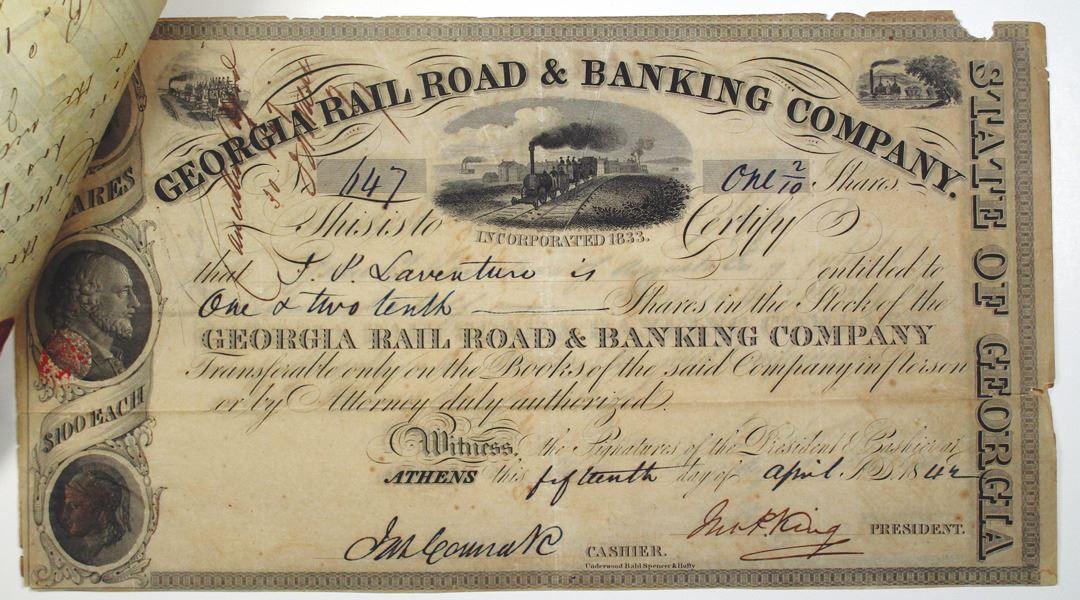 GEORGIA RAIL ROAD & BANKING COMPANY.
147
One 2/10 Shares
INCORPORATED 1833.
This is to Certify
that J. P. Laventure is entitled to
One & two tenth Shares in the Stock of the
GEORGIA RAIL ROAD & BANKING COMPANY
Transferable only on the Books of the said Company in person
or by Attorney duly authorized.
Witness, the Signatures of the President & Cashier at
ATHENS this fifteenth day of April A.D. 1842
CASHIER.
Jno P. King PRESIDENT.
Underwood Bald Spencer & Hufty
ARES
$100 EACH
STATE OF GEORGIA